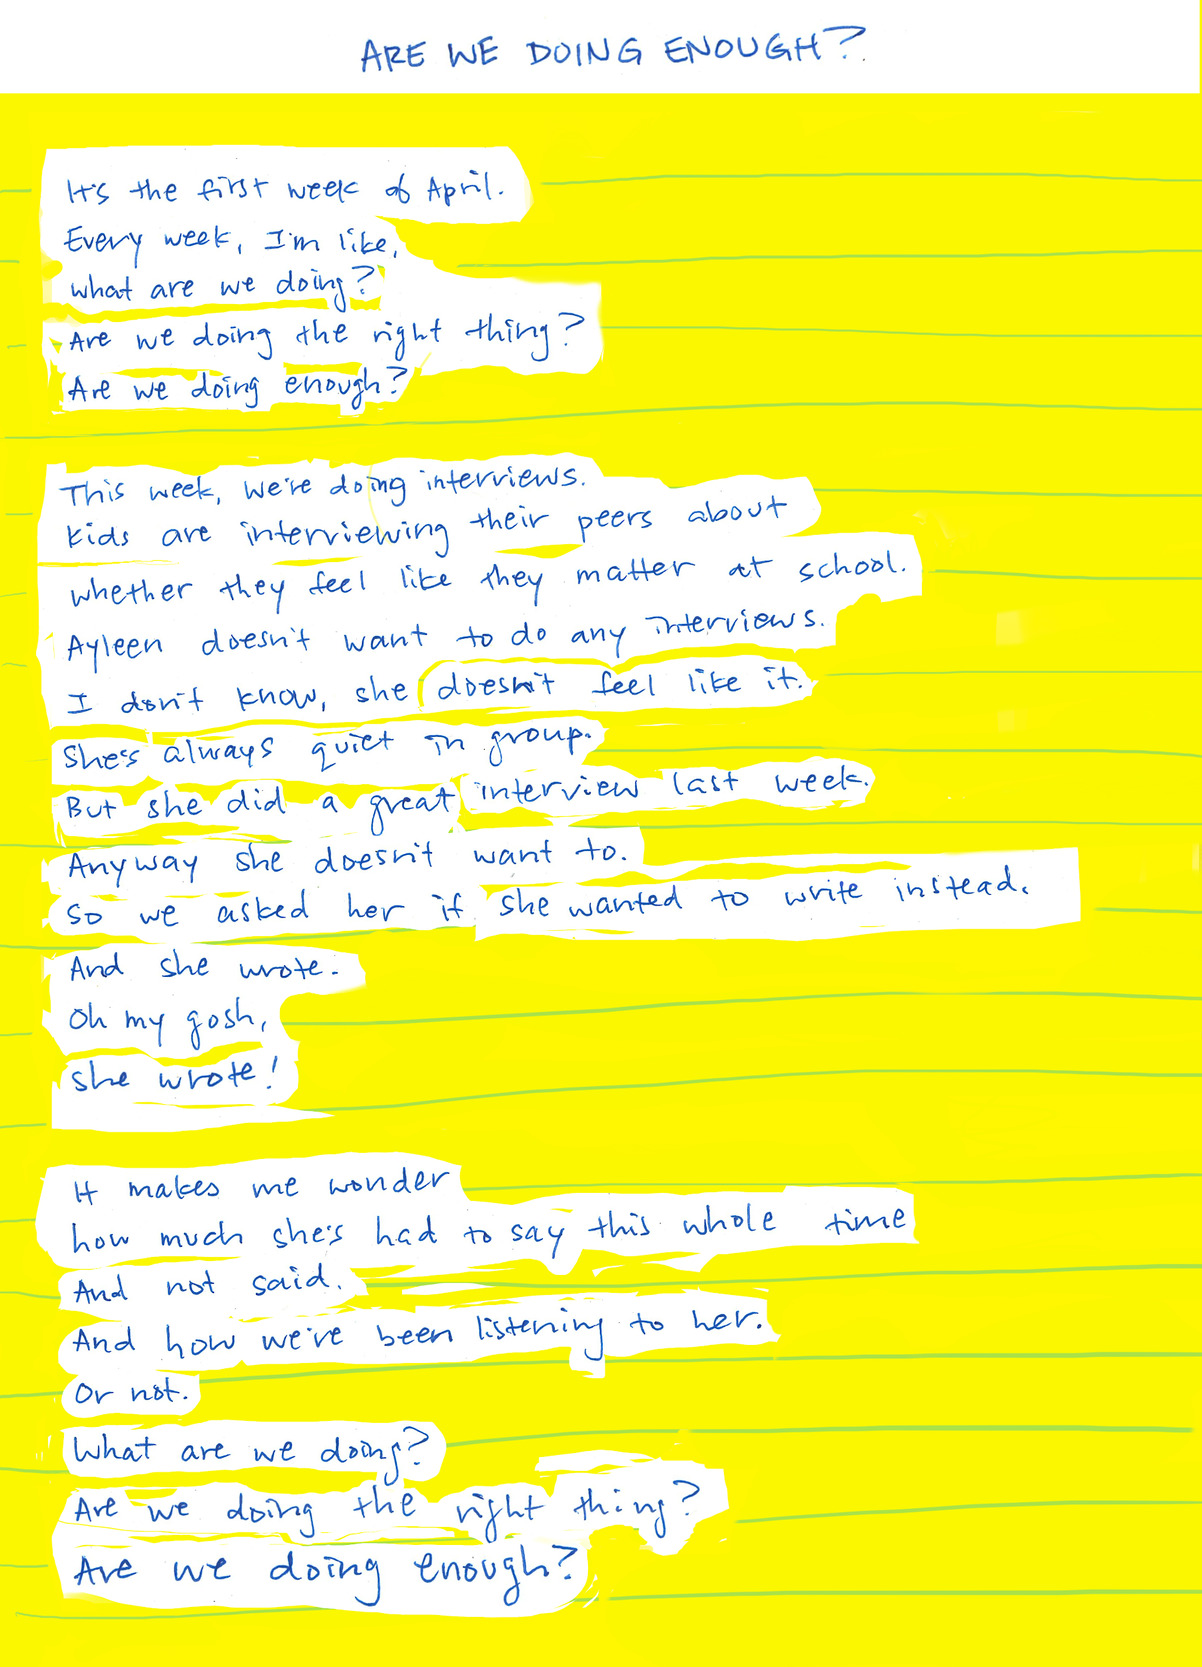 ARE WE DOING ENOUGH?
It's the first week of April.
Every week, I'm like,
what are we doing?
Are we doing the right thing?
Are we doing enough?
This week, we're doing interviews.
Kids are interviewing their peers about
whether they feel like they matter at school.
Ayleen doesn't want to do any interviews.
I don't know, she doesn't feel like it.
She's always quiet in group.
But she did a great interview last week.
Anyway she doesn't want to.
So we asked her if she wanted to write instead.
And she wrote.
Oh my gosh,
she wrote!
It makes me wonder
how much she's had to say this whole time
And not said.
And how we've been listening to her.
Or not.
What are we doing?
Are we doing the right thing?
Are we doing enough?